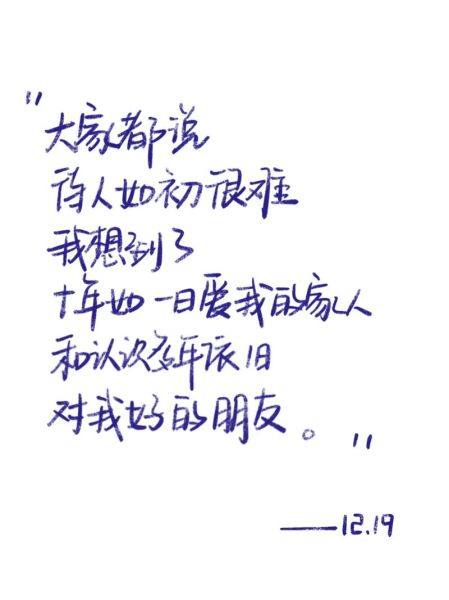 "大家都说
待人如初很难
我想到了
十年如一日爱我的家人
和认识多年依旧
对我好的朋友。"
——12.19